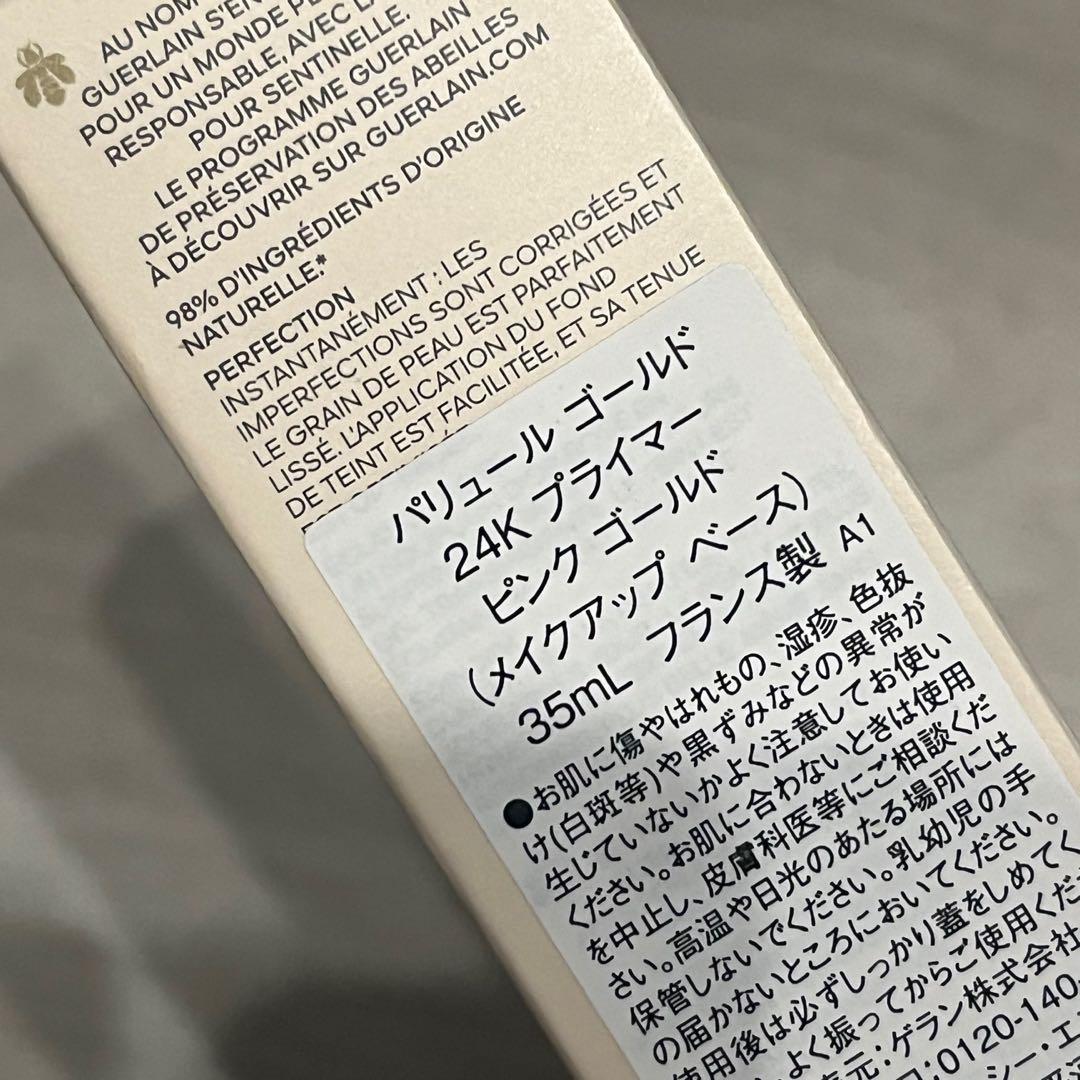 AU NOM
GUERLAIN S'EN
POUR UN MONDE
RESPONSABLE, AVEC LA
POUR SENTINELLE.
LE PROGRAMME GUERLAIN
DE PRÉSERVATION DES ABEILLES
À DÉCOUVRIR SUR GUERLAIN.COM
98% D'INGRÉDIENTS D'ORIGINE
NATURELLE.*
PERFECTION
INSTANTANÉMENT : LES
IMPERFECTIONS SONT CORRIGÉES ET
LE GRAIN DE PEAU EST PARFAITEMENT
LISSÉ. L'APPLICATION DU FOND
DE TEINT EST FACILITÉE, ET SA TENUE
パリュール ゴールド
24K プライマー
ピンク ゴールド
(メイクアップ ベース)
35mL フランス製 A1
●お肌に傷やはれもの、湿疹、色抜
け(白斑等)や黒ずみなどの異常が
生じていないかよく注意してお使い
ください。お肌に合わないときは使用
を中止し、皮膚科医等にご相談くだ
さい。高温や日光のあたる場所には
保管しないでください。乳幼児の手
の届かないところにおいてください。
使用後は必ずしっかり蓋をしめてく
よく振ってからご使用くだ
元:ゲラン株式会社
口:0120-140-
シー・エ